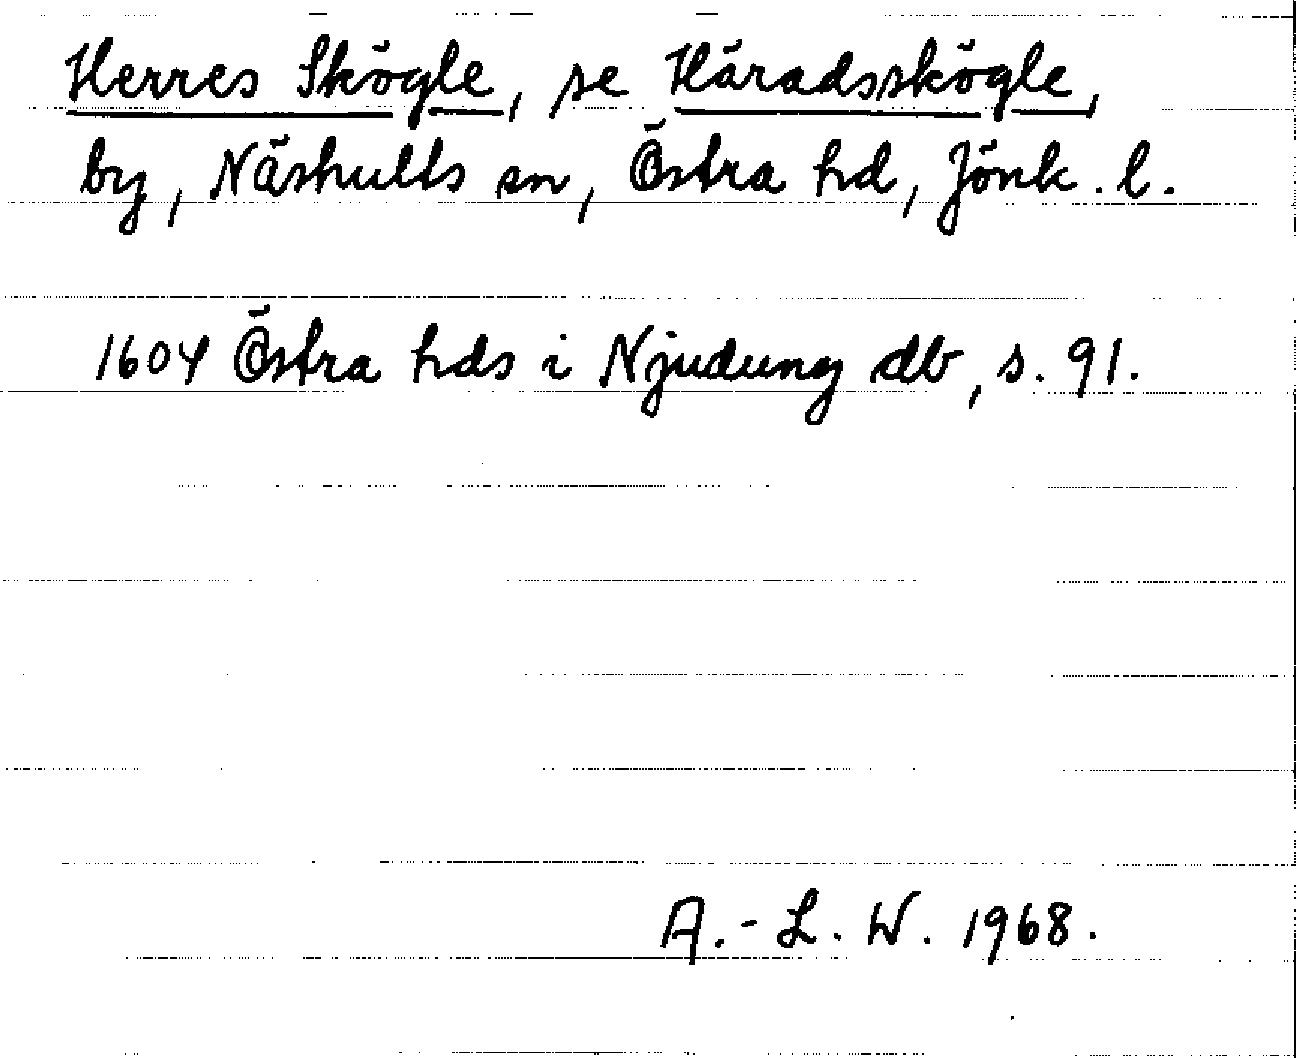 Herres Skögle, se Häradsskögle,
by, Näshults sn, Östra hd, Jönk. l.
1604 Östra hds i Njudung db, s. 91.
A.-L. W. 1968.